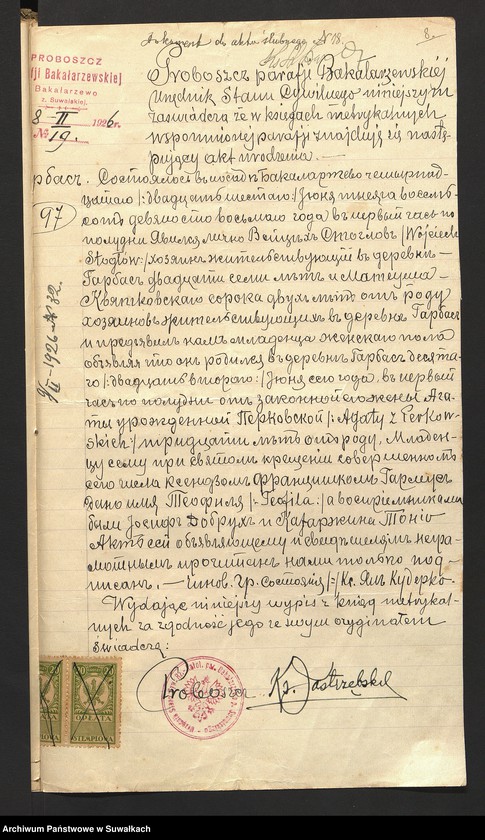 Dokument do aktu ślubnego № 18.
8.
PROBOSZCZ
fji Bakałarzewskiej
Bakałarzewo
z. Suwalskiej.
8-II 1926 r.
№ 19.
Proboszcz parafji Bakałarzewskiej
Urzędnik Stanu Cywilnego niniejszym
zaświadcza że w księgach metrykalnych
wspomnionej parafji znajduje się nastę-
pujący akt urodzenia. —
рбасъ. Состоялось въ посадѣ Бакаляржево четырнад-
97
цатаго /:двадцать шестаго:/ Іюня тысяча восемь-
сотъ девяносто восьмаго года въ первый часъ по
полудни. Явился лично Войцѣхъ Стоглов /Wojciech
Stogłow:/ хозяинъ жительствующій въ деревнѣ
Гарбасъ двадцати семи лѣтъ и Матеуша
Квятковскаго сорока двухъ лѣтъ отъ роду
хозяиновъ жительствующихъ въ деревнѣ Гарбасъ
9/II-1926 № 32
и предъявилъ намъ младенца женскаго пола
объявляя что онъ родился въ деревнѣ Гарбасъ десята-
го /:двадцать втораго:/ Іюня сего года, въ первый
часъ по полудни отъ законной его жены Ага-
ты урожденной Перковской /: Agaty z Perkow-
skich:/ тридцати лѣтъ отъ роду. Младен-
цу сему при святомъ крещеніи совершенномъ
сего числа Ксендзомъ Францишкомъ Гармусъ
дано имя Теофиля /: Teofila:/ а воспріемниками
были Іосифъ Добрухъ и Катаржина Тоніо
Актъ сей объявляющему и свидѣтелямъ негра-
мотнымъ прочитанъ нами только под-
писанъ. — Чинов. Гр. Состоянія /-/ Кс. Янъ Куберко.
Wydając niniejszy wypis z ksiąg metrykal-
nych za zgodność jego ze swym oryginałem
świadczę:
Proboszcz Ks. Jastrzębski
OPŁATA
STEMPLOWA
OPŁATA
STEMPLOWA
Archiwum Państwowe w Suwałkach